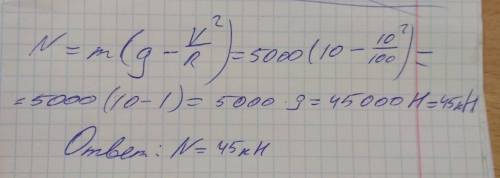 N = m(g - V²/R) = 5000(10 - 10²/100) =
= 5000(10 - 1) = 5000 · 9 = 45000 Н = 45кН
Ответ: N = 45кН